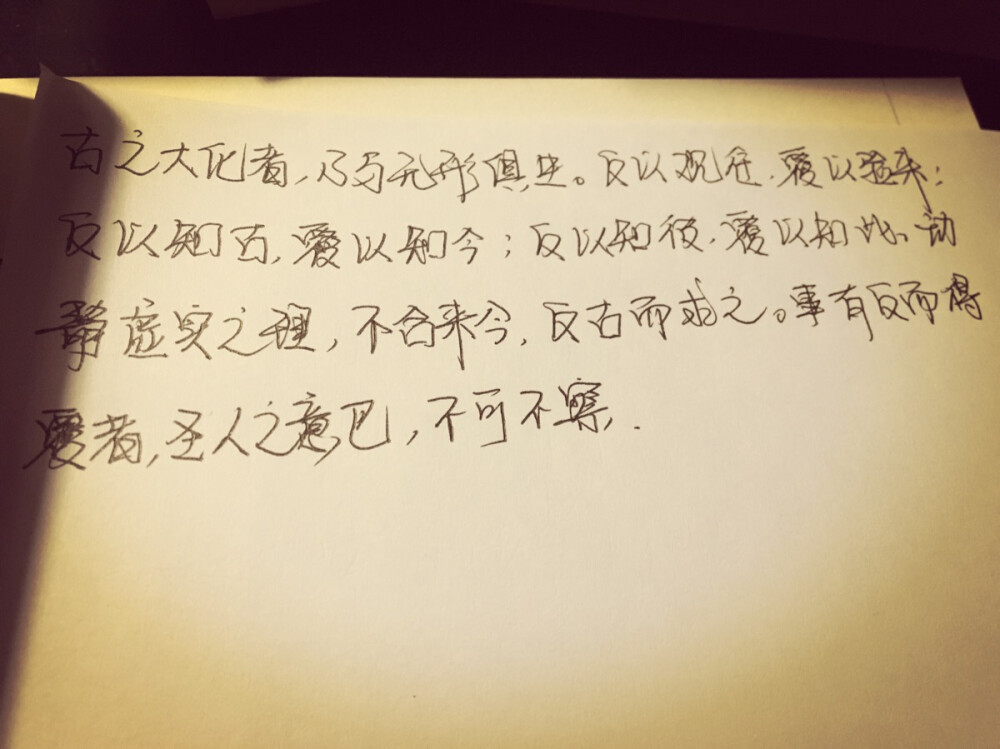 古之大化者,乃与无形俱生。反以观往,覆以验来;
反以知古,覆以知今;反以知彼,覆以知此。动
静虚实之理,不合来今,反古而求之。事有反而得
覆者,圣人之意也,不可不察.